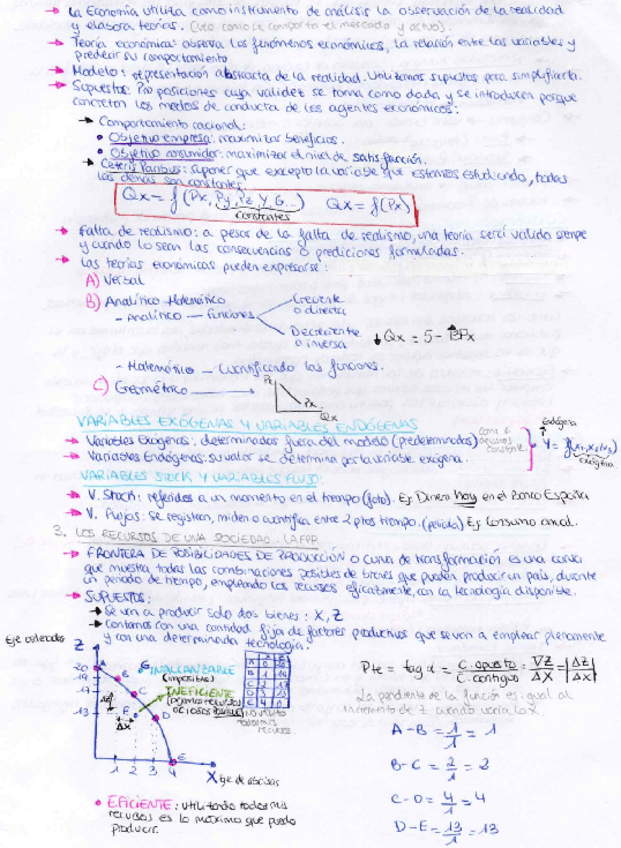 → La Economía utiliza como instrumento de análisis la observación de la realidad
y elabora teorías. (veo como se comporta el mercado y actuo).
→ Teoría económica: observa los fenómenos económicos, la relación entre las variables y
predecir su comportamiento
→ Modelo: representación abstracta de la realidad. Utilizamos supuestos para simplificarla.
→ Supuestos: Proposiciones cuya validez se toma como dada y se introducen porque
concretan los medios de conducta de los agentes económicos:
→ Comportamiento racional:
• Objetivo empresa: maximizar beneficios.
• Objetivo consumidor: maximizar el nivel de satisfacción.
→ Ceteris Paribus: suponer que excepto la variable que estamos estudiando, todas
las demás son constantes.
Qx = f (Px, Py, Pz, Y, G...) Qx = f(Px)
constantes
→ Falta de realismo: a pesar de la falta de realismo, una teoría será valida siempe
y cuando lo sean las consecuencias o prediciones formuladas.
→ Las teorías económicas pueden expresarse:
A) Verbal
B) Analítico Matemático
- Analítico — funciones
Creciente
o directa
Decreciente
o inversa
↓Qx = 5 - ↑3Px
- Matemático — Cuantificando las funciones.
C) Geométrico
Px
Px
Qx
VARIABLES EXÓGENAS Y VARIABLES ENDÓGENAS
→ Variables Exógenas: determinadas fuera del modelo (predeterminados)
→ Variables Endógenas: su valor se determina por la variable exógena.
constante
Endógena
Y = f(x1, x2, x3)
exógena
VARIABLES STOCK Y VARIABLES FLUJO:
→ V. Stock: referidos a un momento en el tiempo (foto). Ej Dinero hoy en el Banco España
→ V. Flujos: Se registran, miden o cuantifica entre 2 ptos tiempo. (película) Ej Consumo anual.
3. LOS RECURSOS DE UNA SOCIEDAD. LA FPP
→ FRONTERA DE POSIBILIDADES DE PRODUCCIÓN o curva de transformación es una curva
que muestra todas las combinaciones posibles de bienes que pueden producir un país, durante
un período de tiempo, empleando los recursos eficientemente, con la tecnología disponible.
→ SUPUESTOS:
→ Se van a producir solo dos bienes: X, Z
→ Contamos con una cantidad fija de factores productivos que se van a emplear plenamente
y con una determinada tecnología.
Eje ordenadas
Z
20
19
17
13
A
B
C
D
E
F
G
ΔZ
ΔX
1 2 3 4
X Eje de abscisas
• INALCANZABLE
(imposible)
INEFICIENTE
(dejamos recursos
OCIOSOS POSIBLE)
A 0 20
B 1 19
C 2 17
D 3 13
E 4 0
no utilizo
todos mis
recursos.
Pte = tag α = C. opuesto / C. contiguo = ∇Z / ΔX = |ΔZ / ΔX|
La pendiente de la función es igual al
incremento de Z cuando varía la X.
A-B = 1/1 = 1
B-C = 2/1 = 2
C-D = 4/1 = 4
D-E = 13/1 = 13
• EFICIENTE: utilizando todos mis
recursos es lo máximo que puedo
producir.